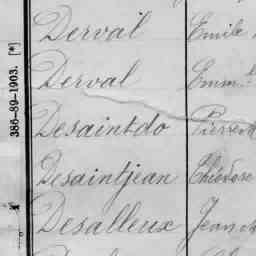 Derval Emile
Derval Emm.
Desaintdo Pierre M
Desaintjean Théodore
Desalleux Jean M
386-89-1903. [*]